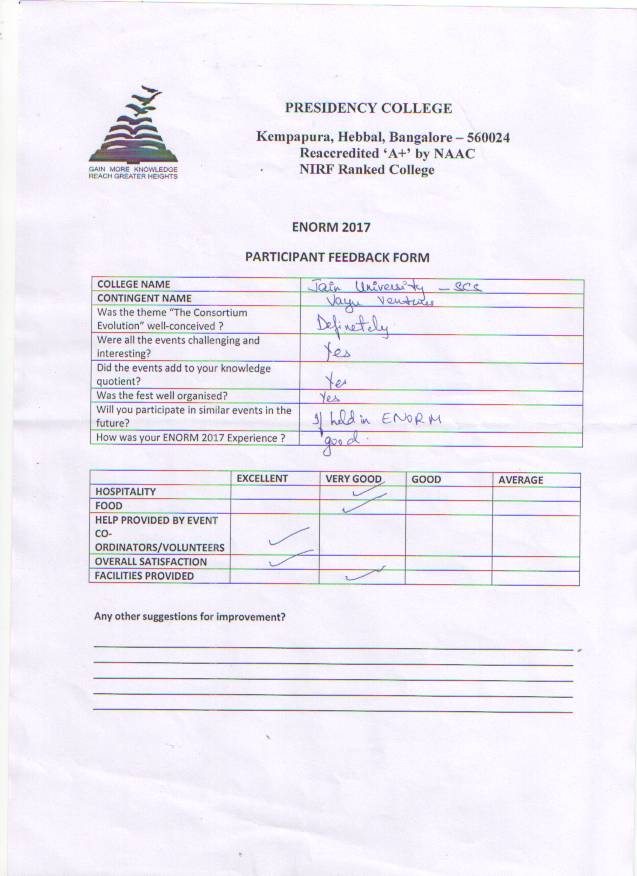 PRESIDENCY COLLEGE
Kempapura, Hebbal, Bangalore – 560024
Reaccredited ‘A+’ by NAAC
NIRF Ranked College
GAIN MORE KNOWLEDGE
REACH GREATER HEIGHTS
ENORM 2017
PARTICIPANT FEEDBACK FORM
COLLEGE NAME Jain University - SCS
CONTINGENT NAME Vayu Venture
Was the theme “The Consortium
Evolution” well-conceived ? Definetely
Were all the events challenging and
interesting? Yes
Did the events add to your knowledge
quotient? Yes
Was the fest well organised? Yes
Will you participate in similar events in the
future? If held in ENORM
How was your ENORM 2017 Experience ? good.
EXCELLENT VERY GOOD GOOD AVERAGE
HOSPITALITY ✓
FOOD ✓
HELP PROVIDED BY EVENT
CO-
ORDINATORS/VOLUNTEERS ✓
OVERALL SATISFACTION ✓
FACILITIES PROVIDED ✓
Any other suggestions for improvement?